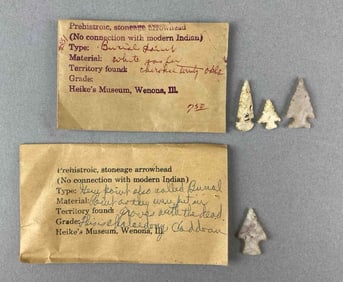 Prehistroic, stoneage arrowhead
(No connection with modern Indian)
Type: Burial Point
Material: white jasper
Territory found cherokee
Grade:
Heike's Museum, Wenona, Ill.
Prehistroic, stoneage arrowhead
(No connection with modern Indian)
Type: Key point also called Burial
Material: Point as they were put in
Territory found: graves with the dead
Grade: chalcedony Caddoan
Heike's Museum, Wenona, Ill.